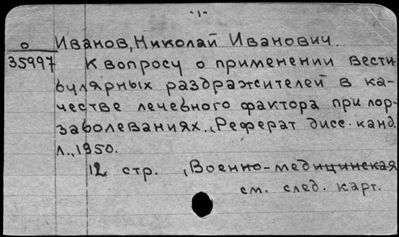 -1-
о Иванов, Николай Иванович.
35997 К вопросу о применении вести
булярных раздражителей в ка-
честве лечебного фактора при лор-
заболеваниях., Реферат дисс. канд.
Л., 1950.
12 стр. , Военно-медицинская
см. след. карт.